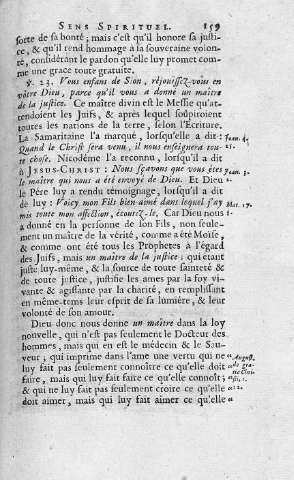 SENS SPIRITUEL. 159
sorte de sa bonté; mais c'est qu'il honore sa justi-
ce, & qu'il rend hommage à sa souveraine volon-
té, considérant le pardon qu'elle luy promet com-
me une grace toute gratuite.
℣. 23. Vous enfans de Sion, réjouissez-vous en
vôtre Dieu, parce qu'il vous a donné un maître
de la justice. Ce maître divin est le Messie qu'at-
tendoient les Juifs, & après lequel soûpiroient
toutes les nations de la terre, selon l'Ecriture.
La Samaritaine l'a marqué, lorsqu'elle a dit: Joan. 4.
Quand le Christ sera venu, il nous enseignera tou- 25.
te chose. Nicodéme l'a reconnu, lorsqu'il a dit
à JESUS-CHRIST: Nous sçavons que vous étes Joan. 3.
le maître qui nous a été envoyé de Dieu. Et Dieu 2.
le Pére luy a rendu témoignage, lorsqu'il a dit
de luy: Voicy mon Fils bien-aimé dans lequel j'ay Mat. 17.
mis toute mon affection, écoutez-le. Car Dieu nous 5.
a donné en la personne de son Fils, non seule-
ment un maître de la vérité, comme a été Moïse,
& comme ont été tous les Prophètes à l'égard
des Juifs, mais un maître de la justice: qui étant
juste luy-même, & la source de toute sainteté &
de toute justice, justifie les ames par la foy vi-
vante & agissante par la charité, en remplissant
en même-tems leur esprit de sa lumiére, & leur
volonté de son amour.
Dieu donc nous donne un maître dans la loy
nouvelle, qui n'est pas seulement le Docteur des
hommes, mais qui en est le médecin & le Sau-
veur; qui imprime dans l'ame une vertu qui ne August.
luy fait pas seulement connoître ce qu'elle doit de gra-
faire, mais qui luy fait faire ce qu'elle connoît;
& qui ne luy fait pas seulement croire ce qu'elle
doit aimer, mais qui luy fait aimer ce qu'elle